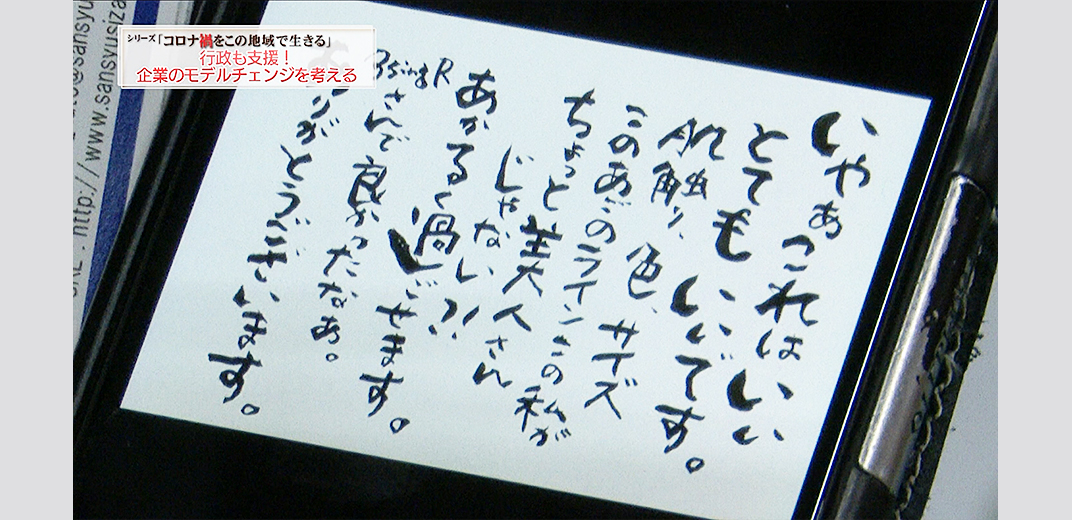 シリーズ「コロナ禍をこの地域で生きる」
行政も支援!
企業のモデルチェンジを考える
いやぁこれはいい
とてもいいです。
肌触り、色、サイズ
このあごのラインこの私が
ちょっと美人さん
じゃない?!
あかるく過ごせます。
さんで良かったなぁ。
りがとうございます。
@sansyu
http://www.sansyusiza